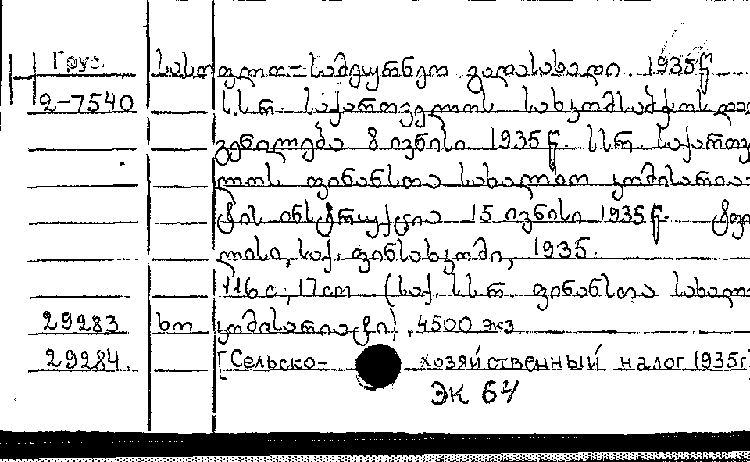 Груз. სასოფლო-სამეურნეო გადასახადი. 1935წ
2-7540 ს.ს.რ. საქართველოს სახკომსაბჭოს და
გენილება 8 ივნისი 1935წ. სსრ. საქართვ
ლოს ფინანსთა სახალხო კომისარია-
ტის ინსტრუქცია 15 ივნისი 1935წ. ტფი
ლისი, საქ. ფინსახკომი, 1935.
116с; 17см (საქ. ს.ს.რ. ფინანსთა სახალ
29283 ხო კომისარიატი), 4500 экз
29284. [Сельско-хозяйственный налог 1935г]
ЭК 64